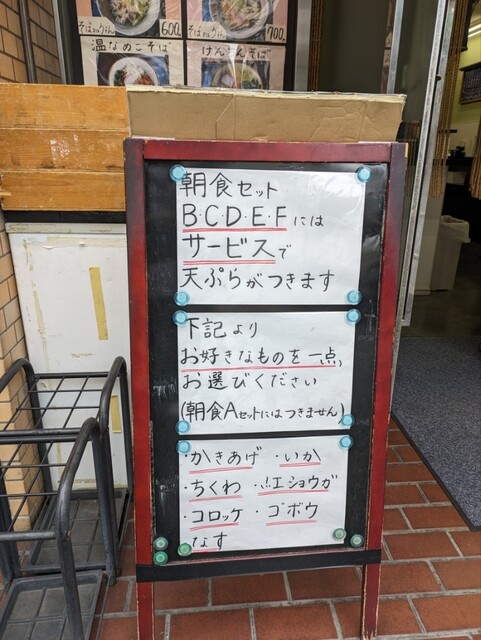 そばorうどん 600
そばorうどん 700
温なめこそば
けんちんそば
朝食セット
B・C・D・E・Fには
サービスで
天ぷらがつきます
下記より
お好きなものを一点、
お選びください
(朝食Aセットにはつきません)
・かきあげ ・いか
・ちくわ ・紅ショウガ
・コロッケ ・ゴボウ
なす